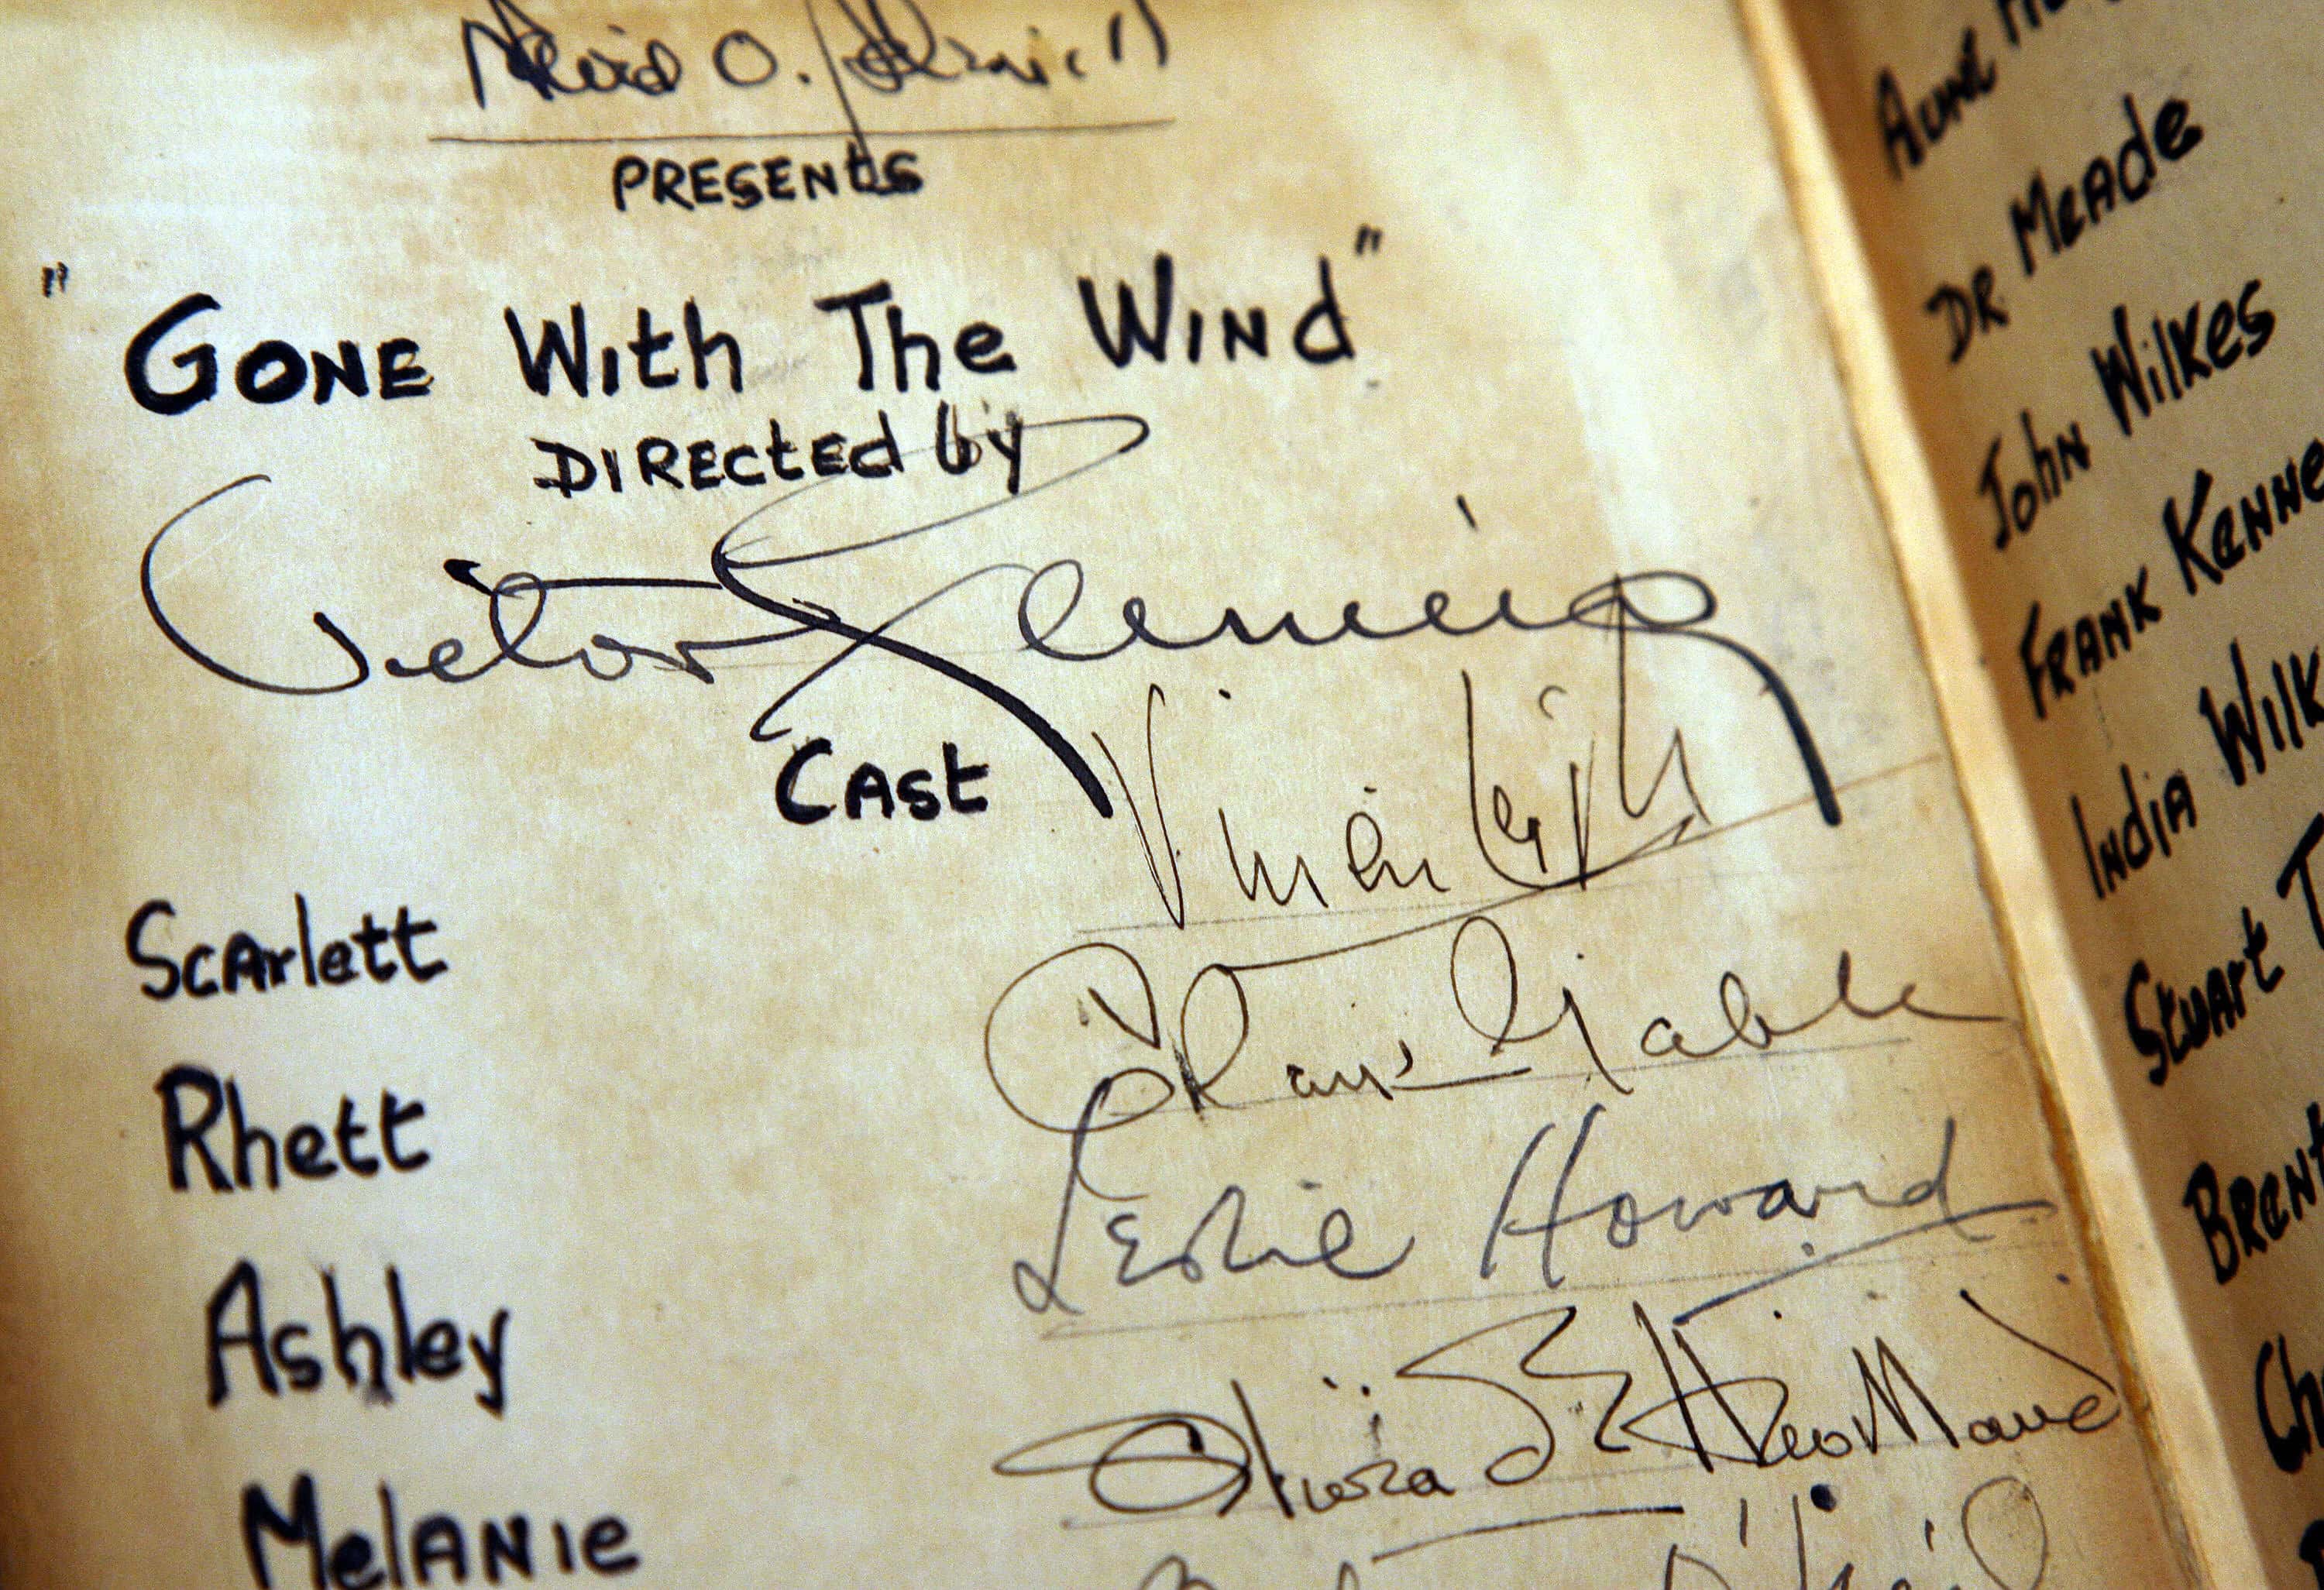 David O. Selznick
PRESENtS
"GONE With The WINd"
DIRECted by
Victor Fleming
CAst
Scarlett
Vivien Leigh
Rhett
Clark Gable
Ashley
Leslie Howard
MelANIe
Olivia de Havilland
O'Neil
Aunt
DR MeAde
John Wilkes
FRANK
INdIA
Stuart